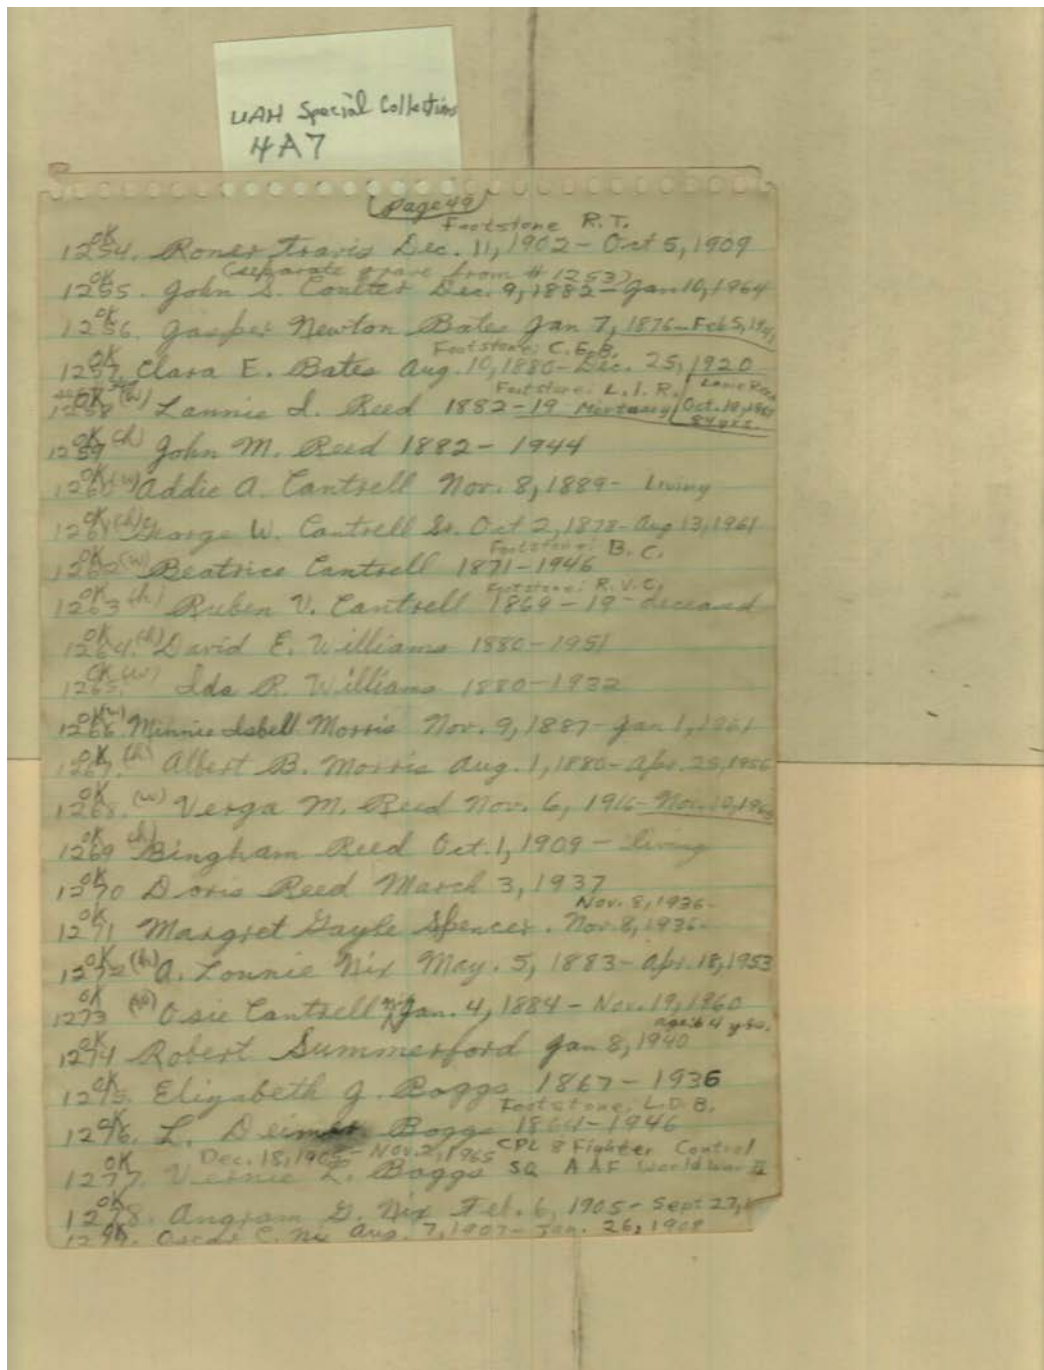 UAH Special Collections
4A7
page 49
Footstone R.T.
OK
1254. Roner Travis Dec. 11, 1902 - Oct 5, 1909
(separate grave from # 1253)
OK
1255. John S. Coulter Dec. 9, 1882 - Jan 10, 1964
OK
1256. Gasper Newton Bates Jan 7, 1876 - Feb 5,
Footstone: C.E.B.
OK
1257. Clara E. Bates Aug. 10, 1880 - Dec. 25, 1920
Footstone: L.I.R.
OK (w)
1258 Lannie I. Reed 1882-19 Mortuary Oct. 10,
84 yrs
OK (h)
1259 John M. Reed 1882 - 1944
OK (w)
1260 Addie A. Cantrell Nov. 8, 1889 - Living
OK (h)
1261 George W. Cantrell Sr. Oct 2, 1878 - Aug 13, 1961
Footstone: B.C.
OK (w)
1262 Beatrice Cantrell 1871-1946
Footstone: R.V.C.
OK (h)
1263 Ruben V. Cantrell 1869 - 19 - deceased
OK (h)
1264. David E. Williams 1880-1951
OK (w)
1265. Ida R. Williams 1880-1932
OK (w)
1266 Minnie Isbell Morris Nov. 9, 1887 - Jan 1, 1961
OK (h)
1267. Albert B. Morris Aug. 1, 1880 - Apr. 25, 1956
OK (w)
1268. Verga M. Reed Nov. 6, 1916 - Nov. 10,
OK (h)
1269 Bingham Reed Oct. 1, 1909 - living
OK
1270 Doris Reed March 3, 1937
Nov. 8, 1936-
OK
1271 Margret Gayle Spencer. Nov 8, 1936-
OK (h)
1272 A. Lonnie Nix May. 5, 1883 - Apr. 18, 1953
OK (w)
1273 Osie Cantrell Jan. 4, 1884 - Nov. 19, 1960
age 64 yrs.
OK
1274 Robert Summerford Jan 8, 1940
OK
1275. Elizabeth J. Boggs 1867-1936
Footstone: L.D.B.
OK
1276. L. Deimer Boggs 1864-1946
Dec. 18, 1905 - Nov. 2, 1965 CPL 8 Fighter Control
OK
1277. Vernie L. Boggs SQ AAF World War II
OK
1278. Angram G. Nix Feb. 6, 1905 - Sept 27,
OK
1279. Oscar C. Nix Aug. 7, 1907 - Jan. 26, 1908